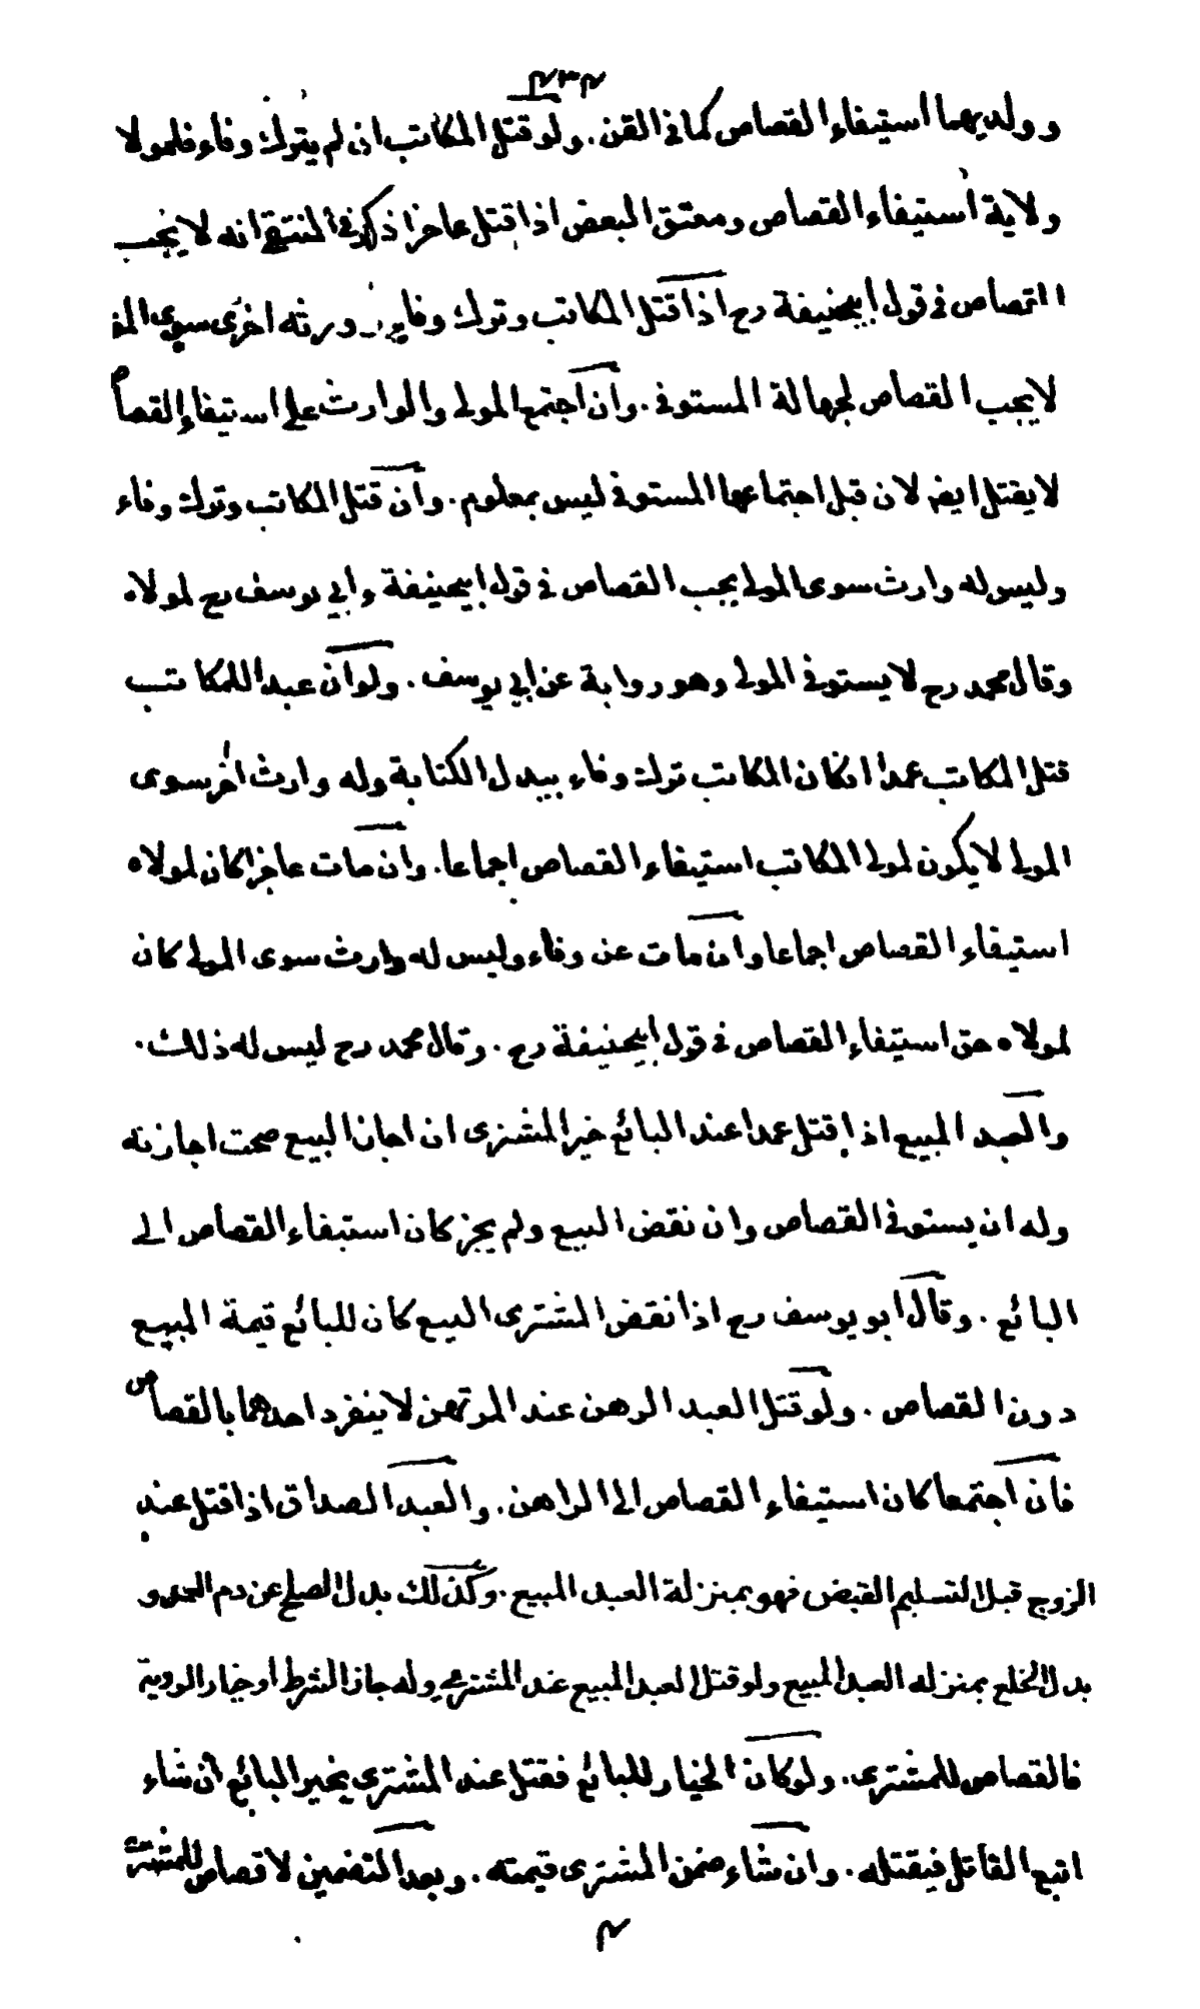 ٤٣٤
وولديهما استيفاء القصاص كما في القن . ولو قتل المكاتب ان لم يترك وفاء فلمولاه
ولاية استيفاء القصاص ومعتق البعض اذا قتل عاجزا ذكر في المنتقى انه لا يجب
القصاص في قول ابيحنيفة رح اذا قتل المكاتب وترك وفاء وورثه اخرى سوى
لا يجب القصاص لجهالة المستوفى . وان اجتمع المولى والوارث على استيفاء القصاص
لا يقتل ايضا لان قبل اجتماعهما المستوفى ليس بمعلوم . وان قتل المكاتب وترك وفاء
وليس له وارث سوى المولى يجب القصاص في قول ابيحنيفة وابي يوسف رح لمولاه
وقال محمد رح لا يستوفى المولى وهو رواية عن ابي يوسف . ولو ان عبدا للمكاتب
قتل المكاتب عمدا انكان المكاتب ترك وفاء ببدل الكتابة وله وارث اخر سوى
المولى لا يكون لمولى المكاتب استيفاء القصاص اجماعا . وان مات عاجزا كان لمولاه
استيفاء القصاص اجماعا وان مات عن وفاء وليس له وارث سوى المولى كان
لمولاه حق استيفاء القصاص في قول ابيحنيفة رح . وقال محمد رح ليس له ذلك .
والعبد المبيع اذا قتل عمدا عند البائع خير المشترى ان اجاز البيع صحت اجازته
وله ان يستوفى القصاص وان نقض البيع ولم يجز كان استيفاء القصاص الى
البائع . وقال ابو يوسف رح اذا نقض المشترى البيع كان للبائع قيمة المبيع
دون القصاص . ولو قتل العبد الرهن عند المرتهن لا ينفرد احدهما بالقصاص
فان اجتمعا كان استيفاء القصاص الى الراهن . والعبد الصداق اذا قتل عند
الزوج قبل التسليم القبض فهو بمنزلة العبد المبيع . وكذلك بدل الصلح عن دم العمد و
بدل الخلع بمنزله العبد المبيع ولو قتل العبد المبيع عند المشترى وله خيار الشرط او خيار الروية
فالقصاص للمشترى . ولو كان الخيار للبائع فقتل عند المشترى يخير البائع ان شاء
اتبع القاتل فيقتله . وان شاء ضمن المشترى قيمته . وبعد التضمين لا قصاص للمشترى